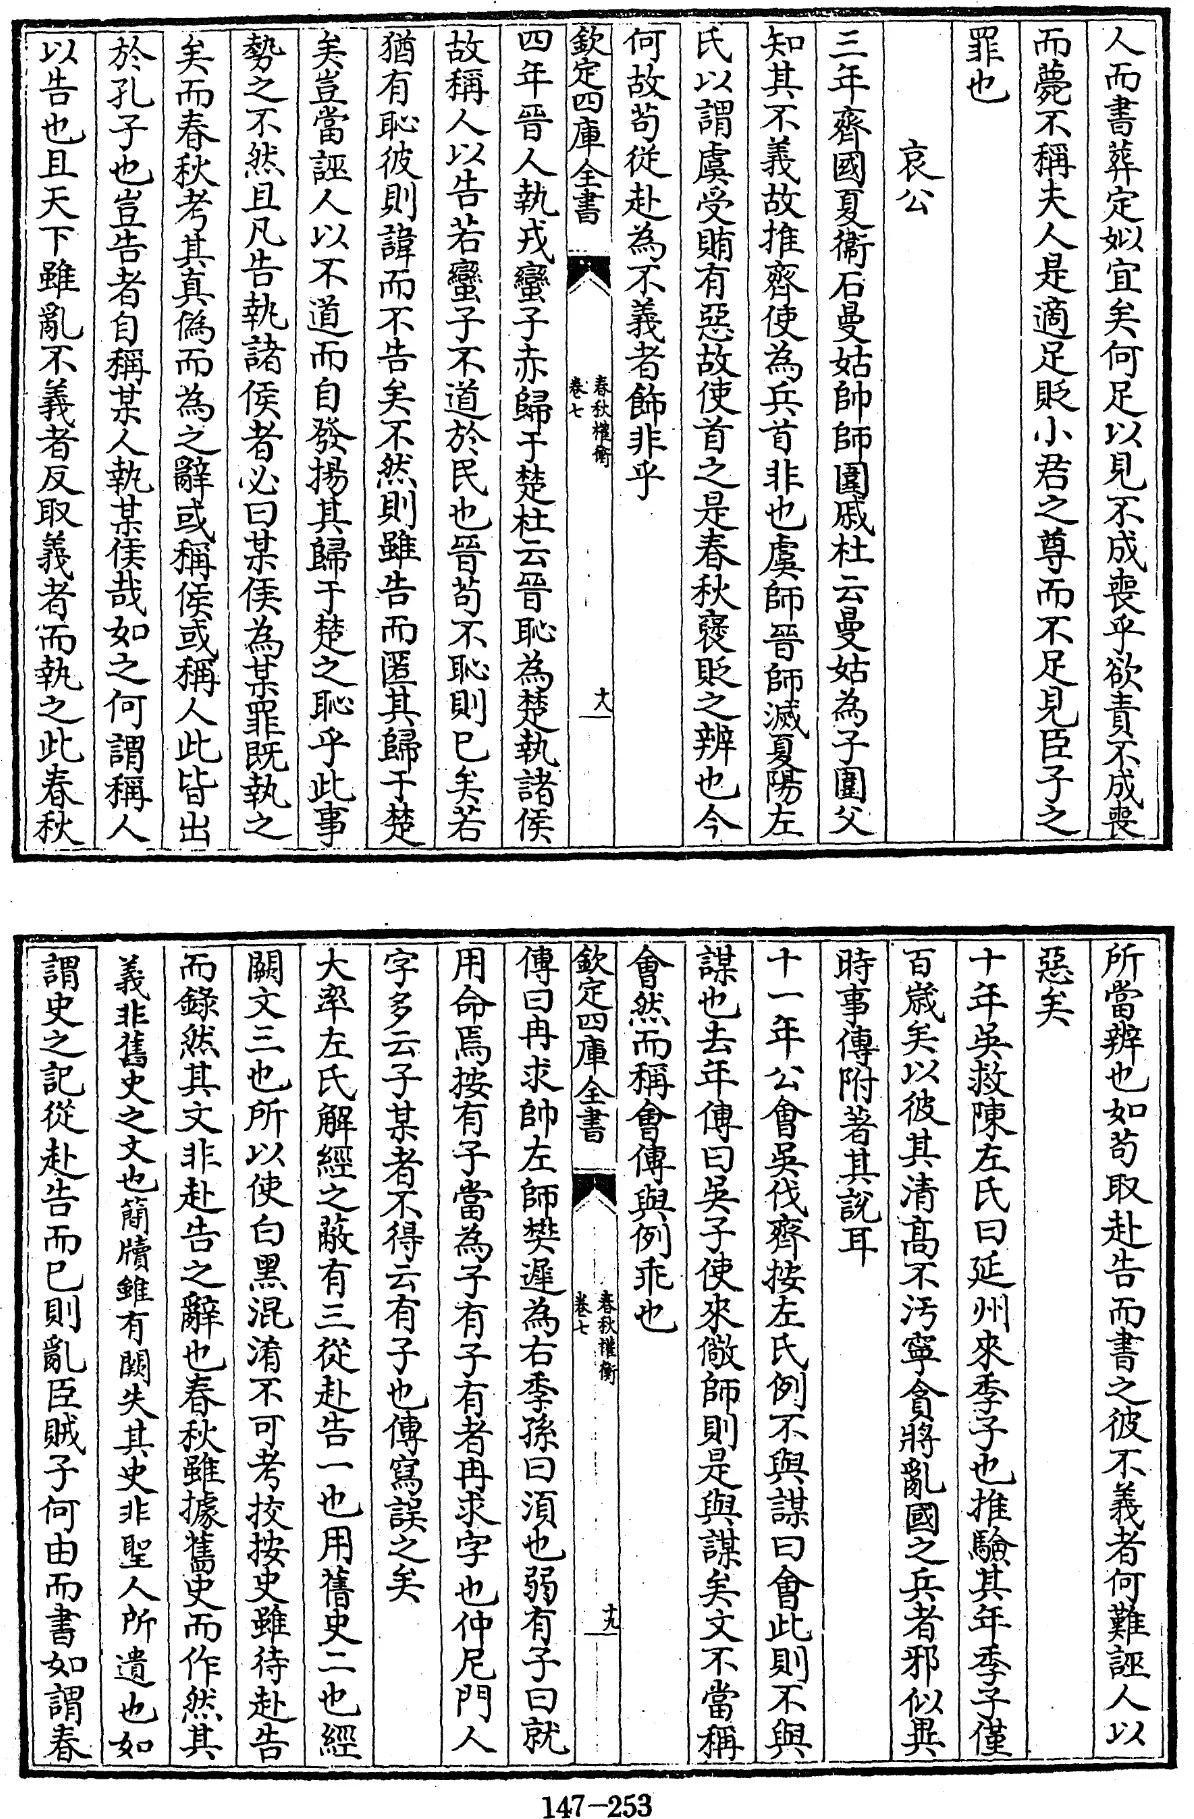 人而書葬定姒宜矣何足以見不成喪乎欲責不成喪
而薨不稱夫人是適足貶小君之尊而不足見臣子之
罪也
哀公
三年齊國夏衞石曼姑帥師圍戚杜云曼姑為子圍父
知其不義故推齊使為兵首非也虞師晉師滅夏陽左
氏以謂虞受賄有惡故使首之是春秋襃貶之辨也今
何故苟從赴為不義者飾非乎
欽定四庫全書
春秋權衡
卷七
十八
四年晉人執戎蠻子赤歸于楚杜云晉恥為楚執諸侯
故稱人以告若蠻子不道於民也晉苟不恥則已矣若
猶有恥彼則諱而不告矣不然則雖告而匿其歸于楚
矣豈當誣人以不道而自發揚其歸于楚之恥乎此事
勢之不然且凡告執諸侯者必曰某侯為某罪既執之
矣而春秋考其真偽而為之辭或稱侯或稱人此皆出
於孔子也豈告者自稱某人執某侯哉如之何謂稱人
以告也且天下雖亂不義者反取義者而執之此春秋
所當辨也如苟取赴告而書之彼不義者何難誣人以
惡矣
十年吳救陳左氏曰延州來季子也推驗其年季子僅
百歲矣以彼其清髙不汚寧貪將亂國之兵者邪似異
時事傳附著其說耳
十一年公會吳伐齊按左氏例不與謀曰會此則不與
謀也去年傳曰吳子使來儆師則是與謀矣文不當稱
會然而稱會傳與例乖也
欽定四庫全書
春秋權衡
卷七
十九
傳曰冉求帥左師樊遲為右季孫曰須也弱有子曰就
用命焉按有子當為子有子有者冉求字也仲尼門人
字多云子某者不得云有子也傳寫誤之矣
大率左氏解經之蔽有三從赴告一也用舊史二也經
闕文三也所以使白黑混淆不可考校按史雖待赴告
而錄然其文非赴告之辭也春秋雖據舊史而作然其
義非舊史之文也簡牘雖有闕失其史非聖人所遺也如
謂史之記從赴告而已則亂臣賊子何由而書如謂春
147-253